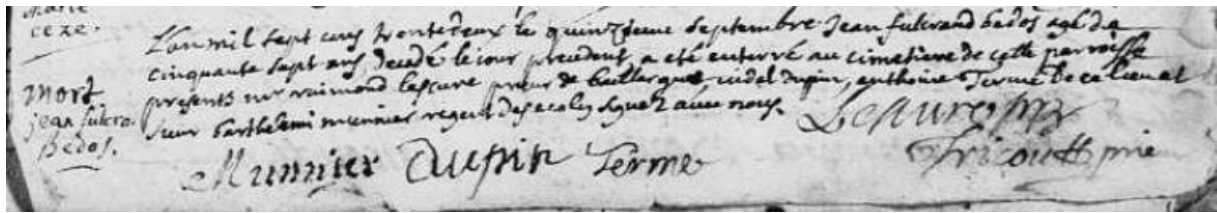 ceze.
mort
jean fulcra.
bedos.
L'an mil sept cens trente deux le quinzieme septembre jean fulcrand bedos agé de
cinquante sept ans, decedé le jour precedent, a eté enterré au cimetiere de cette parroisse
presents mr raimond lescure prieur de baillergue vidal dupin, anthoine Terme de ce lieu et
sieur barthelemi munnier regent des ecoles signez avec nous.
Lescure pr
Munnier Dupin Terme Fricoutt prie